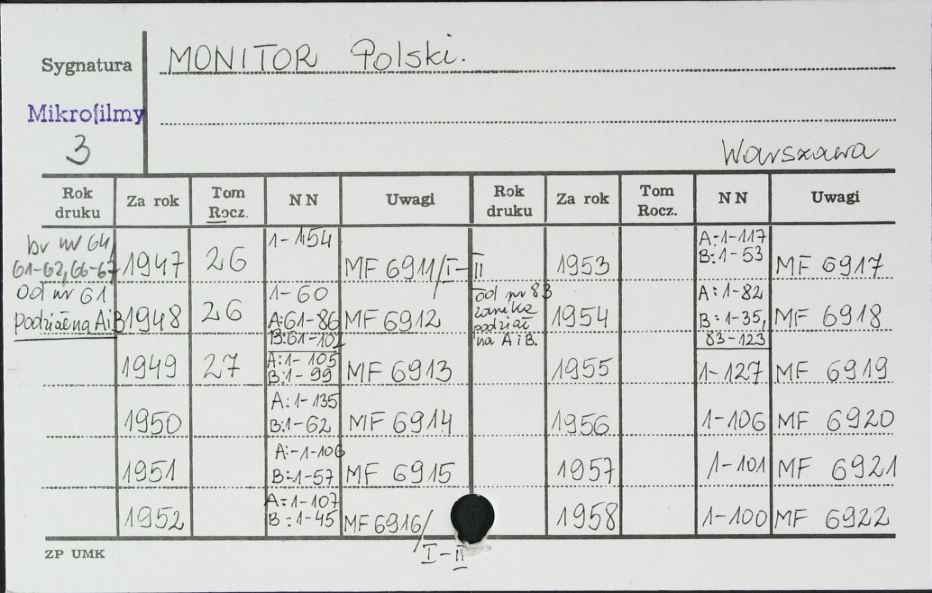 Sygnatura MONITOR Polski.
Mikrofilmy
3
Warszawa
Rok druku Za rok Tom Rocz. NN Uwagi Rok druku Za rok Tom Rocz. NN Uwagi
br nr 64, 61-62, 66-67 1947 26 1-154 MF 6911/I-II 1953 A:1-117 B:1-53 MF 6917
Od nr 61 podział na A i B 1948 26 1-60 A:61-86 B:61-102 MF 6912 od nr 83 zanika podział na A i B. 1954 A:1-82 B:1-35, 83-123 MF 6918
1949 27 A:1-105 B:1-99 MF 6913 1955 1-127 MF 6919
1950 A:1-135 B:1-62 MF 6914 1956 1-106 MF 6920
1951 A:-1-106 B:1-57 MF 6915 1957 1-101 MF 6921
1952 A:1-107 B:1-45 MF 6916/I-II 1958 1-100 MF 6922
ZP UMK